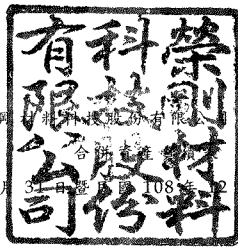 榮剛材料
科技股份
有限公司
材料科技股份有限公司
合併
月31日暨民國108年12